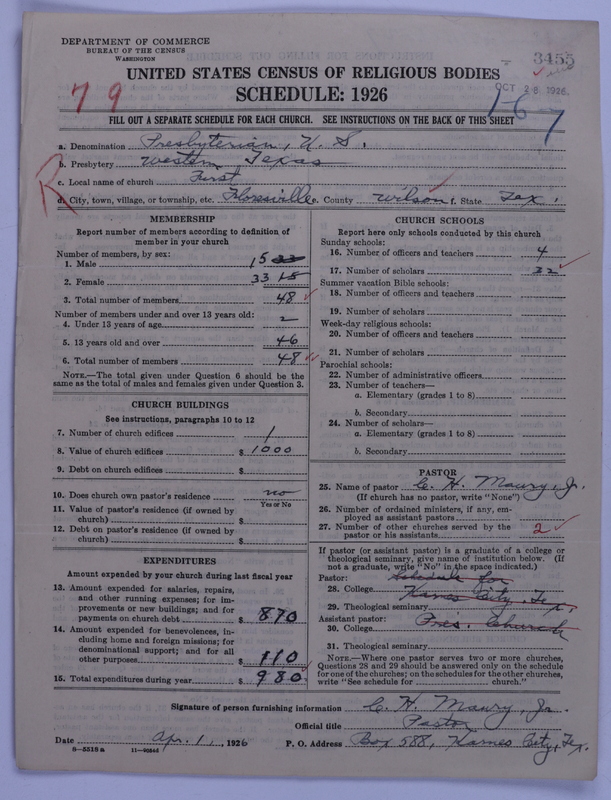 DEPARTMENT OF COMMERCE
BUREAU OF THE CENSUS
WASHINGTON
3455
7 9
UNITED STATES CENSUS OF RELIGIOUS BODIES
OCT 28 1926
SCHEDULE: 1926
1-6-7
FILL OUT A SEPARATE SCHEDULE FOR EACH CHURCH. SEE INSTRUCTIONS ON THE BACK OF THIS SHEET
R
a. Denomination Presbyterian, U. S.
b. Presbytery Western Texas
c. Local name of church First
d. City, town, village, or township, etc. Floresville e. County Wilson f. State Tex.
MEMBERSHIP
Report number of members according to definition of
member in your church
Number of members, by sex:
1. Male 15 33
2. Female 33 15
3. Total number of members 48
Number of members under and over 13 years old:
4. Under 13 years of age 2
5. 13 years old and over 46
6. Total number of members 48
NOTE.—The total given under Question 6 should be
same as the total of males and females given under Question 3.
CHURCH BUILDINGS
See instructions, paragraphs 10 to 12
7. Number of church edifices 1
8. Value of church edifices $ 1000
9. Debt on church edifices $
10. Does church own pastor's residence no
Yes or No
11. Value of pastor's residence (if owned by
church) $
12. Debt on pastor's residence (if owned by
church) $
EXPENDITURES
Amount expended by your church during last fiscal year
13. Amount expended for salaries, repairs,
and other running expenses; for im-
provements or new buildings; and for
payments on church debt $ 870
14. Amount expended for benevolences, in-
cluding home and foreign missions; for
denominational support; and for all
other purposes $ 110
15. Total expenditures during year $ 980
CHURCH SCHOOLS
Report here only schools conducted by this church
Sunday schools:
16. Number of officers and teachers 4
17. Number of scholars 32
Summer vacation Bible schools:
18. Number of officers and teachers
19. Number of scholars
Week-day religious schools:
20. Number of officers and teachers
21. Number of scholars
Parochial schools:
22. Number of administrative officers
23. Number of teachers—
a. Elementary (grades 1 to 8)
b. Secondary
24. Number of scholars—
a. Elementary (grades 1 to 8)
b. Secondary
PASTOR
25. Name of pastor C. H. Maury, Jr.
(If church has no pastor, write "None")
26. Number of ordained ministers, if any, em-
ployed as assistant pastors
27. Number of other churches served by the
pastor or his assistants 2
If pastor (or assistant pastor) is a graduate of a college or
theological seminary, give name of institution below. (If
not a graduate, write "No" in the space indicated.)
Pastor: Schedule for
28. College Karnes City, Tex.
29. Theological seminary
Assistant pastor: Pres. Church
30. College
31. Theological seminary
NOTE.—Where one pastor serves two or more churches,
Questions 28 and 29 should be answered only on the schedule
for one of the churches; on the schedules for the other churches,
write "See schedule for church."
Signature of person furnishing information C. H. Maury, Jr.
Official title Pastor
Date Apr. 1, 1926 P. O. Address Box 588, Karnes City, Tex.
8—5518 a 11—90546